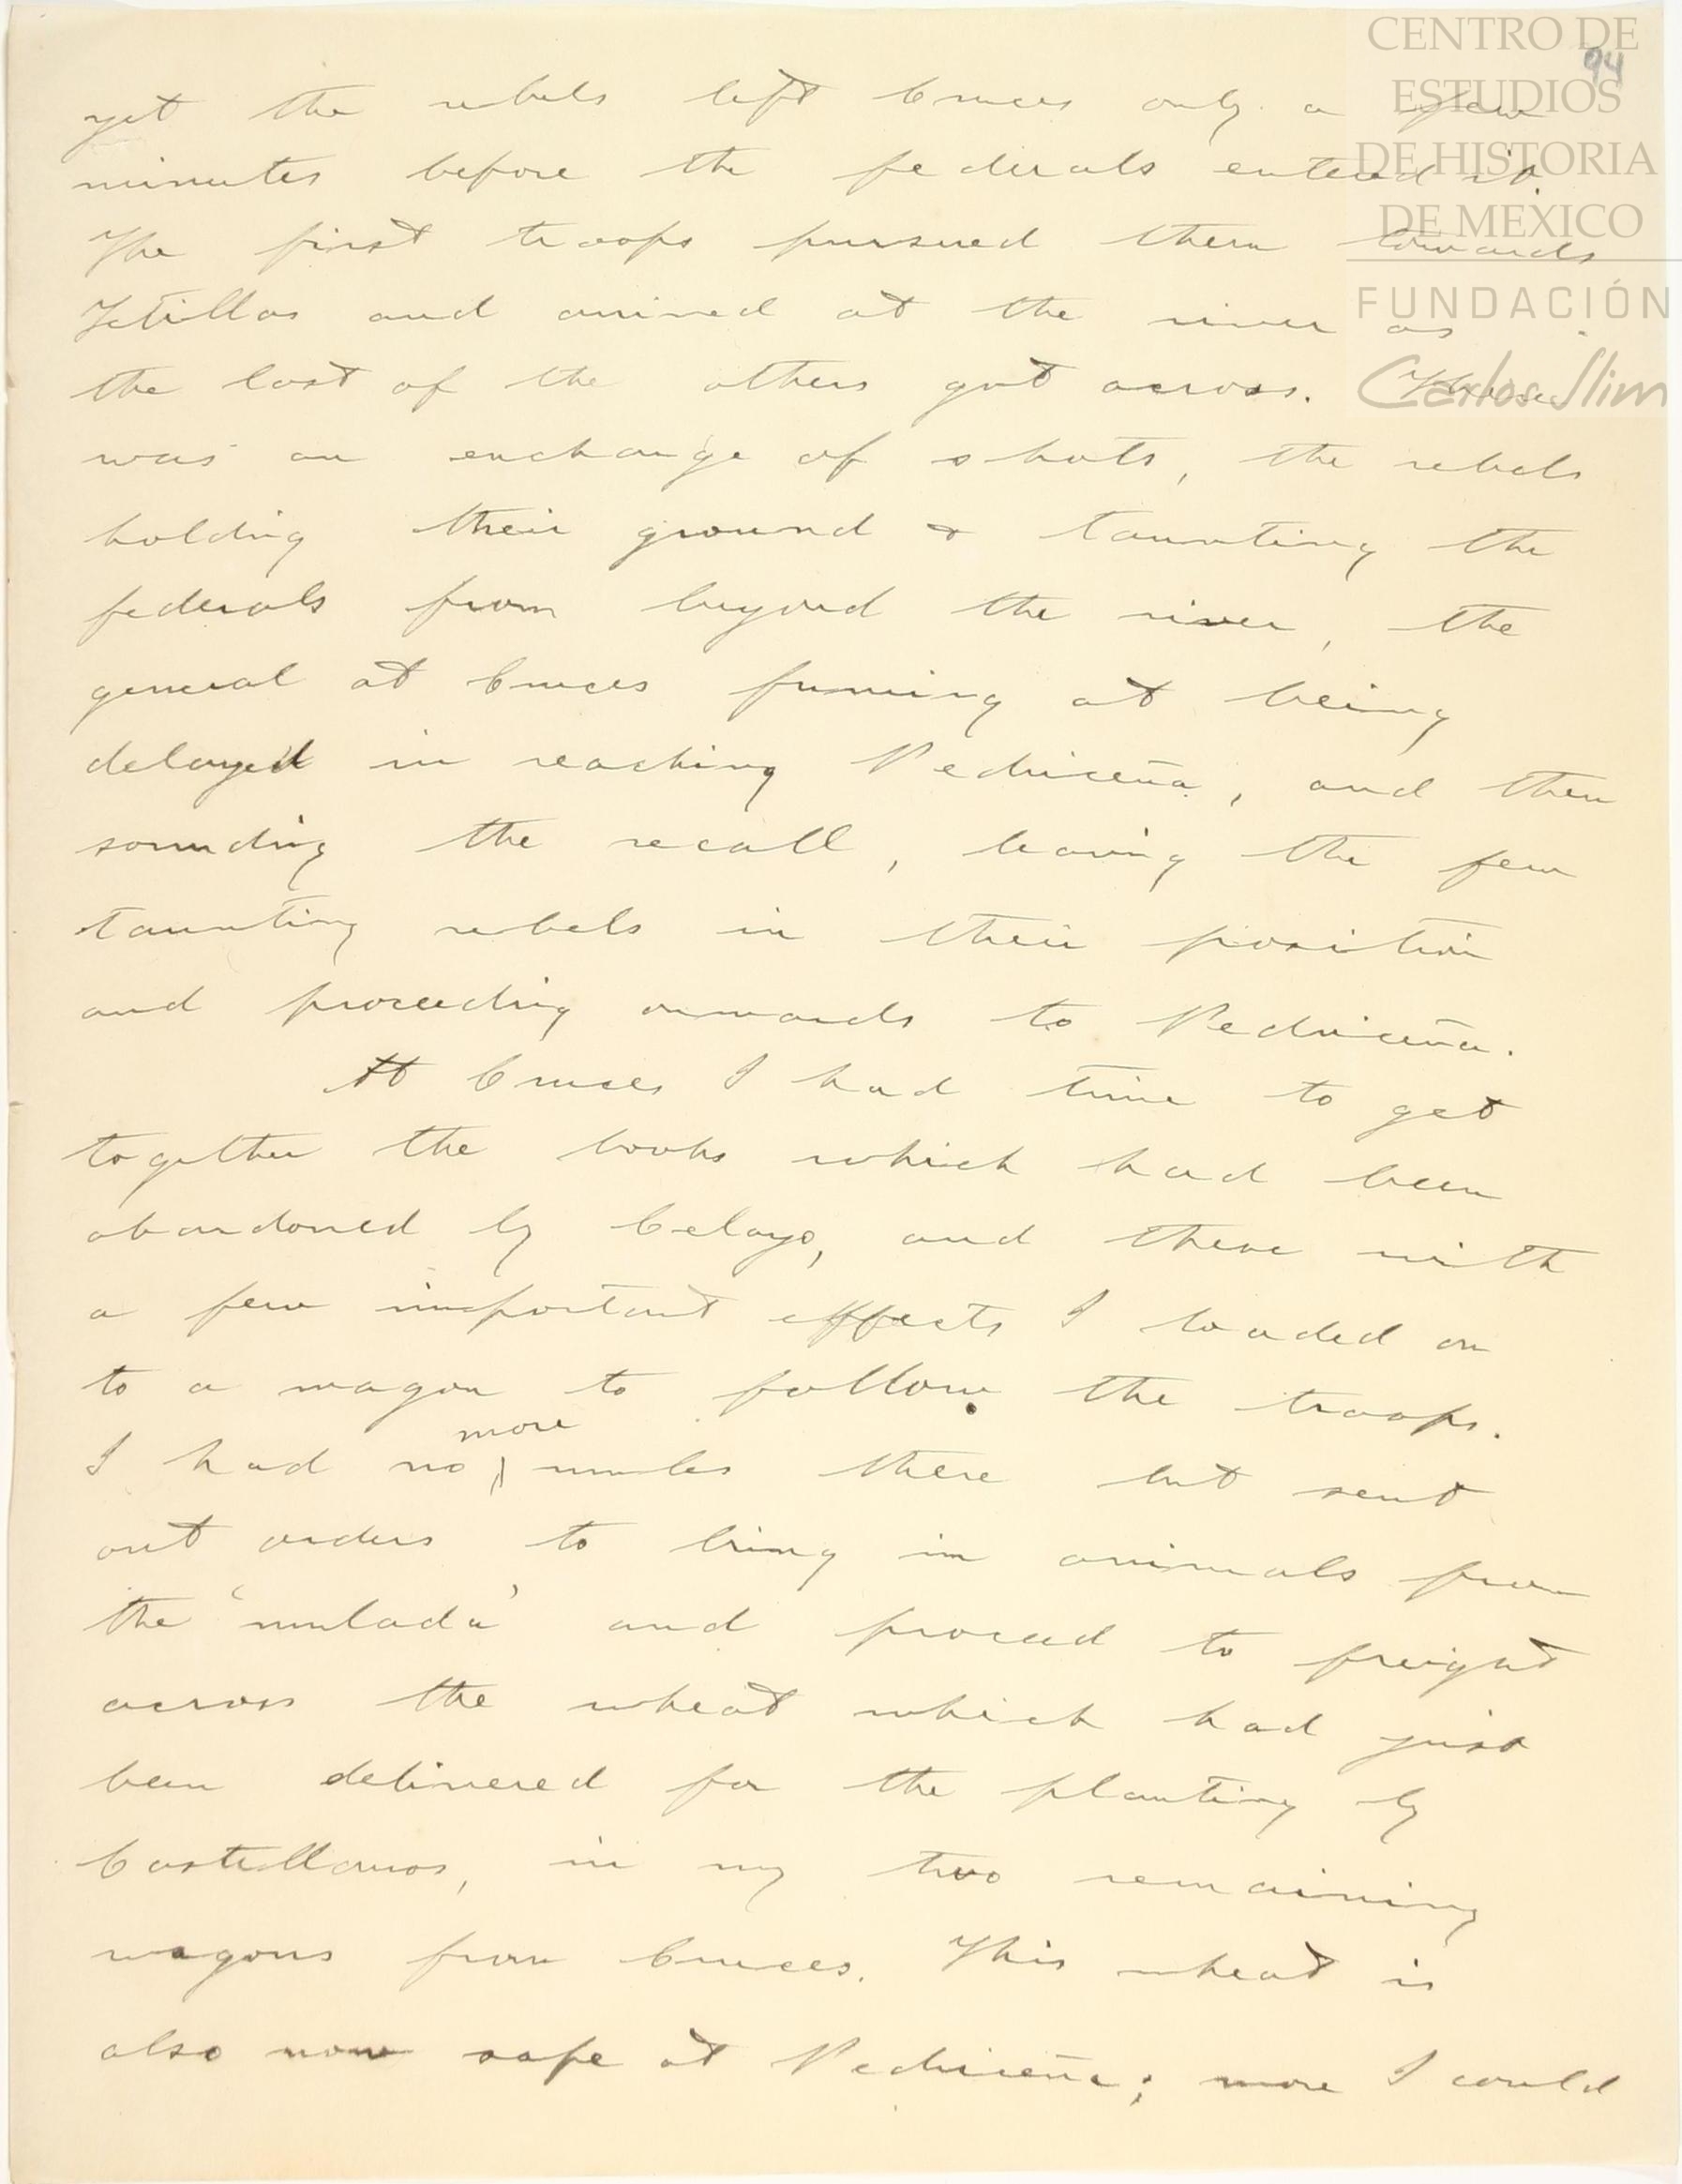 CENTRO DE
ESTUDIOS
DE HISTORIA
DE MEXICO
FUNDACIÓN
Carlos Slim
94
yet the rebels left Cruces only a few
minutes before the federals entered it.
The first troops pursued them towards
Jetillas and arrived at the river as
the last of the others got across. There
was an exchange of shots, the rebels
holding their ground & taunting the
federals from beyond the river, the
general at Cruces fuming at being
delayed in reaching Pedriceña, and then
sounding the recall, leaving the few
taunting rebels in their position
and proceeding onwards to Pedriceña.
At Cruces I had time to get
together the books which had been
abandoned by Celayo, and these with
a few important effects I loaded on
to a wagon to follow the troops.
I had no more mules there but sent
out orders to bring in animals from
the 'mulada' and proceed to freight
across the wheat which had just
been delivered for the planting by
Castellanos, in my two remaining
wagons from Cruces. This wheat is
also now safe at Pedriceña; more I could